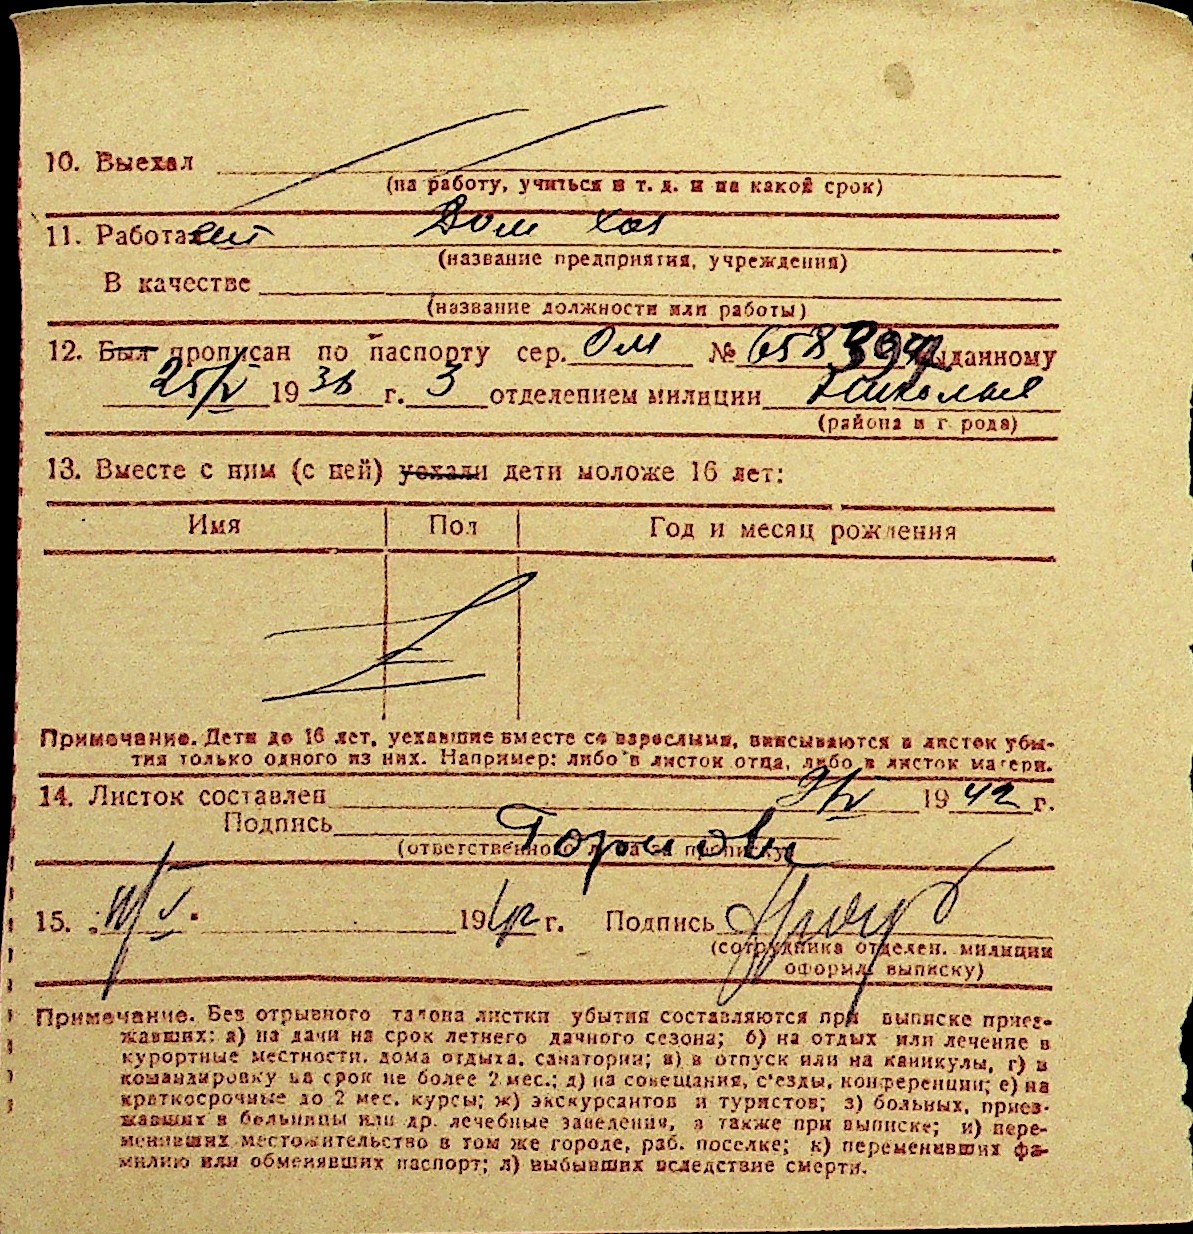 10. Выехал
(на работу, учиться и т. д. и на какой срок)
11. Работает Дом хоз
(название предприятия, учреждения)
В качестве
(название должности или работы)
12. Был прописан по паспорту сер. ОМ № 658 выданному
25/V 1936 г. 3 отделением милиции Николаев
(района и города)
13. Вместе с ним (с ней) уехали дети моложе 16 лет:
Имя Пол Год и месяц рождения
Примечание. Дети до 16 лет, уехавшие вместе со взрослыми, вписываются в листок убы-
тия только одного из них. Например: либо в листок отца, либо в листок матери.
14. Листок составлен 9/V 1942 г.
Подпись
(ответственного лица за прописку)
15. 11/V 1942 г. Подпись
(сотрудника отделен. милиции
оформл. выписку)
Примечание. Без отрывного талона листки убытия составляются при выписке приез-
жавших: а) на дачи на срок летнего дачного сезона; б) на отдых или лечение в
курортные местности, дома отдыха, санатории; в) в отпуск или на каникулы, г) в
командировку на срок не более 2 мес.; д) на совещания, с'езды, конференции; е) на
краткосрочные до 2 мес. курсы; ж) экскурсантов и туристов; з) больных, приез-
жавших в больницы или др. лечебные заведения, а также при выписке; и) пере-
менивших местожительство в том же городе, раб. поселке; к) переменивших фа-
милию или обменявших паспорт; л) выбывших вследствие смерти.